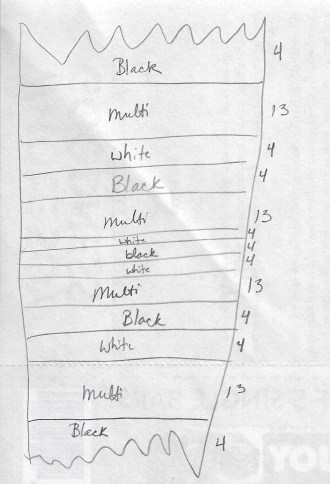 Black 4
Multi 13
White 4
Black 4
Multi 13
white 4
black 4
white 4
Multi 13
Black 4
White 4
Multi 13
Black 4